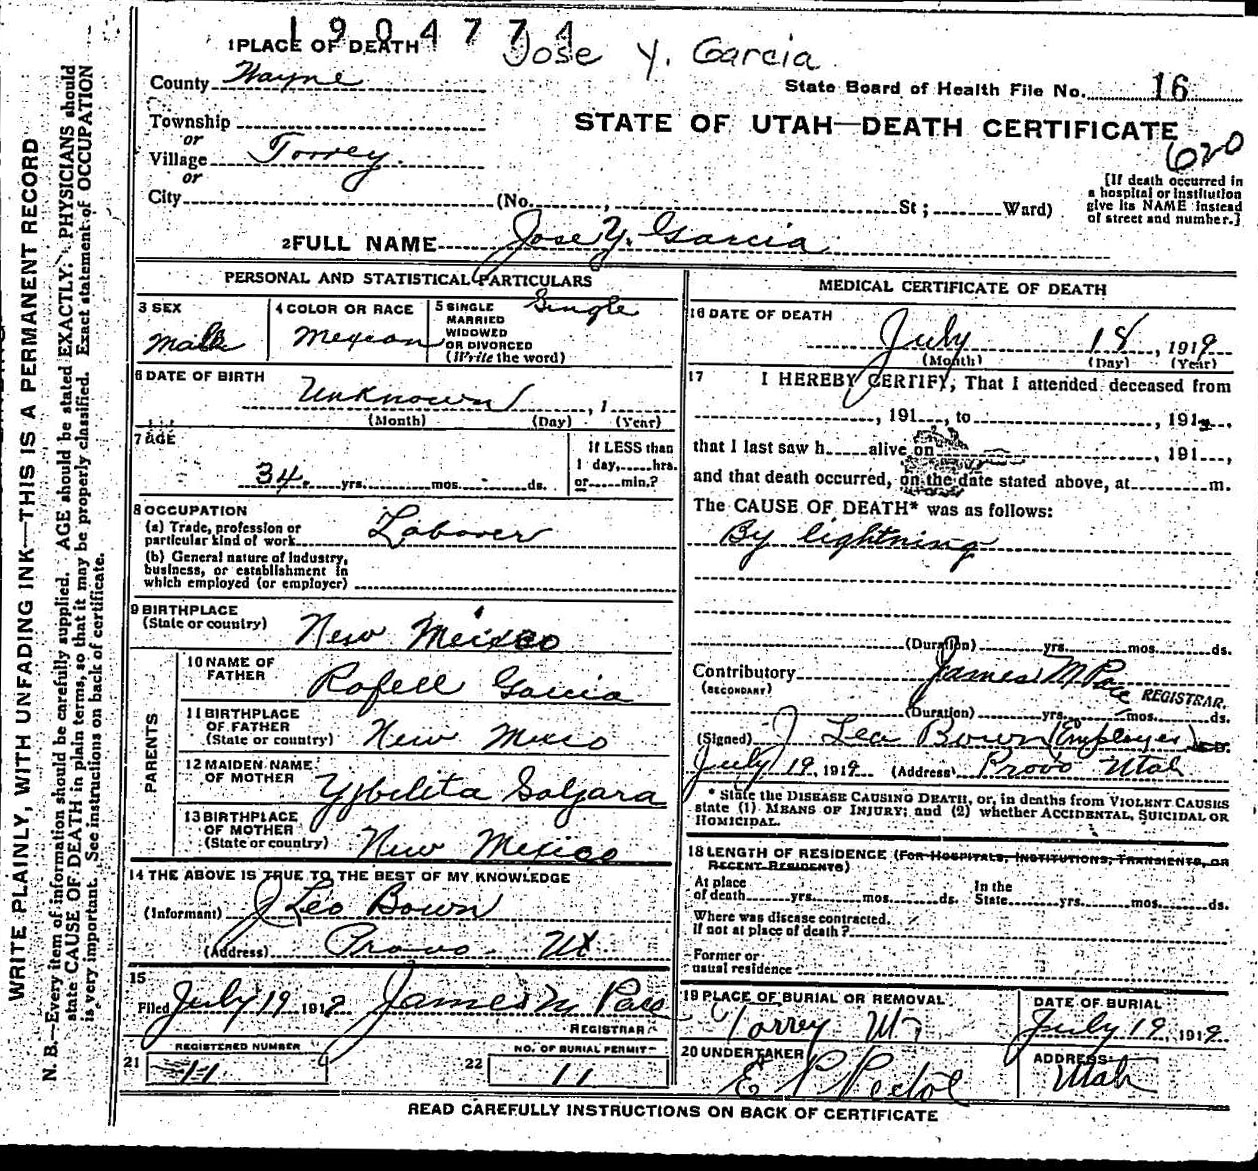 1904774
Jose Y. Garcia
1 PLACE OF DEATH
County Wayne
State Board of Health File No. 16
Township
or
STATE OF UTAH—DEATH CERTIFICATE
620
Village Torrey.
or
City (No. , St ; Ward)
[If death occurred in
a hospital or institution
give its NAME instead
of street and number.]
2 FULL NAME Jose Y. Garcia
PERSONAL AND STATISTICAL PARTICULARS
3 SEX
Male
4 COLOR OR RACE
Mexican
5 SINGLE
MARRIED
WIDOWED
OR DIVORCED
(Write the word)
Single
6 DATE OF BIRTH
Unknown , 1
(Month) (Day) (Year)
7 AGE
34 yrs. mos. ds.
If LESS than
1 day, hrs.
or min.?
8 OCCUPATION
(a) Trade, profession or
particular kind of work Laborer
(b) General nature of industry,
business, or establishment in
which employed (or employer)
9 BIRTHPLACE
(State or country) New Mexico
PARENTS
10 NAME OF
FATHER Rafell Garcia
11 BIRTHPLACE
OF FATHER
(State or country) New Mexico
12 MAIDEN NAME
OF MOTHER
13 BIRTHPLACE
OF MOTHER
(State or country) New Mexico
14 THE ABOVE IS TRUE TO THE BEST OF MY KNOWLEDGE
(Informant) J Leo Bown
(Address) Provo - Ut
15
Filed July 19 191 James M Pace
REGISTRAR
REGISTERED NUMBER
21 11
NO. OF BURIAL PERMIT
22 11
MEDICAL CERTIFICATE OF DEATH
16 DATE OF DEATH
July 18, 1919
(Month) (Day) (Year)
17 I HEREBY CERTIFY, That I attended deceased from
, 191 , to , 191 ,
that I last saw h alive on , 191 ,
and that death occurred, on the date stated above, at m.
The CAUSE OF DEATH* was as follows:
By lightning
(Duration) yrs. mos. ds.
Contributory James M Pace REGISTRAR.
(SECONDARY)
(Duration) yrs. mos. ds.
(Signed) J Leo Bown (Employer) M.D.
July 19, 1919 (Address) Provo Utah
* State the DISEASE CAUSING DEATH, or, in deaths from VIOLENT CAUSES
state (1) MEANS OF INJURY; and (2) whether ACCIDENTAL, SUICIDAL OR
HOMICIDAL.
18 LENGTH OF RESIDENCE (FOR HOSPITALS, INSTITUTIONS, TRANSIENTS, OR
RECENT RESIDENTS)
At place
of death yrs. mos. ds.
In the
State yrs. mos. ds.
Where was disease contracted.
If not at place of death?
Former or
usual residence
19 PLACE OF BURIAL OR REMOVAL
Torrey Ut
DATE OF BURIAL
July 19, 1919
20 UNDERTAKER
E P Pectol
ADDRESS
Utah
READ CAREFULLY INSTRUCTIONS ON BACK OF CERTIFICATE
WRITE PLAINLY, WITH UNFADING INK—THIS IS A PERMANENT RECORD
N. B.—Every item of information should be carefully supplied. AGE should be stated EXACTLY. PHYSICIANS should
state CAUSE OF DEATH in plain terms, so that it may be properly classified. Exact statement of OCCUPATION
is very important. See instructions on back of certificate.